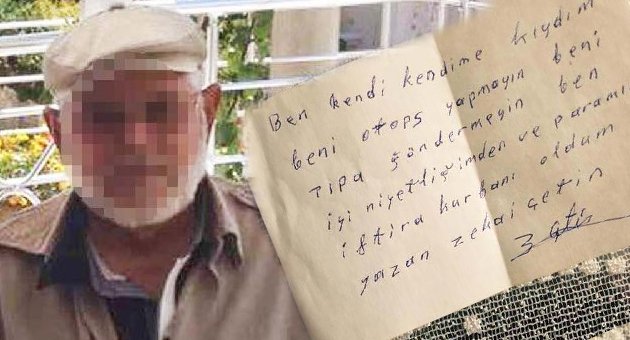 Ben kendi kendime kıydım
beni otops yapmayın beni
Tıpa göndermeyin ben
iyi niyetliğimden ve paramı
iftira kurbanı oldum
yazan zekai çetin